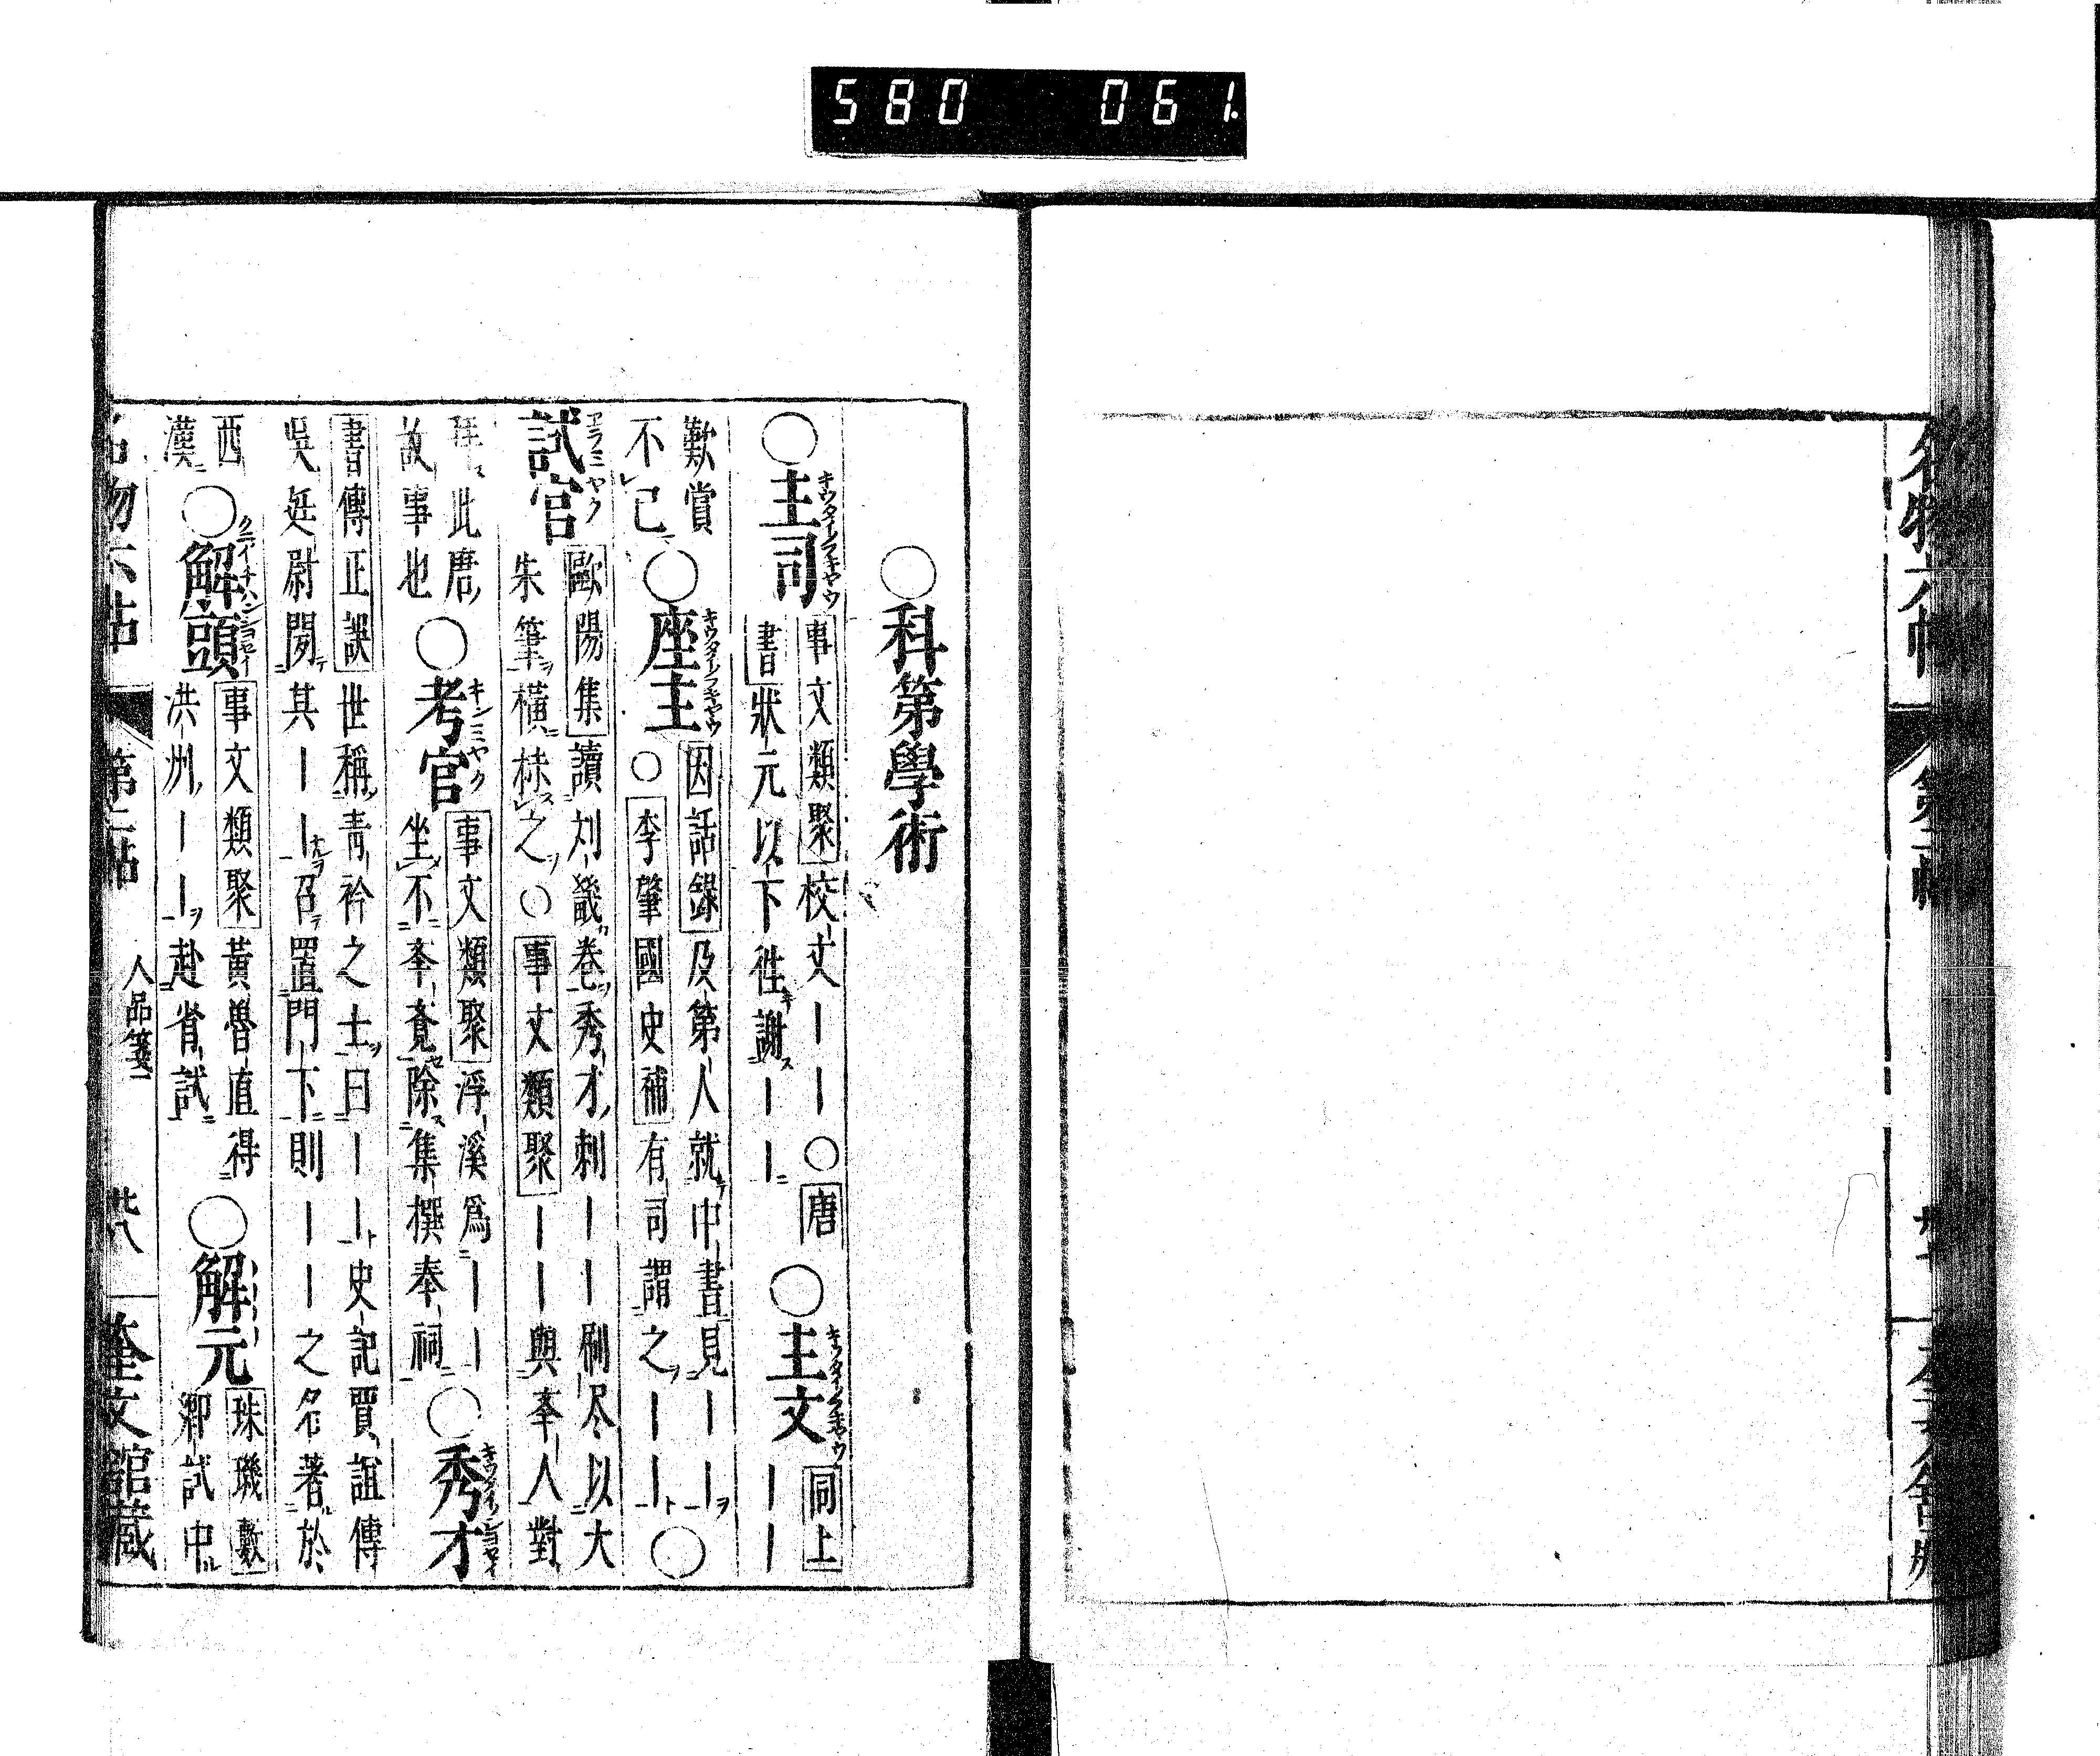 580 061.
○科第學術
○主司 事文類聚 校文｜｜○唐
書 狀元以下徃謝｜｜
○主文 同上 ｜｜
歎賞
不已
○座主 因話錄 及第人就中書見｜｜
○李肇國史補 有司謂之｜｜
○試官 歐陽集 讀刘幾卷秀才刺｜｜刷尽以大
朱筆橫抹之○事文類聚 ｜｜與奉人對
拜此唐
故事也
○考官 事文類聚 浮溪爲｜｜
坐不奉
除集撰奉祠
○秀才
書傳正誤 世稱青衿之士曰｜｜史記賈誼傳
吳廷尉聞其｜｜召置門下則｜｜之名著於
西
漢
○解頭 事文類聚 黃魯直得
洪州｜｜赴省試
○解元 珠璣藪
鄉試中
名物六帖 第二帖 人品箋二 廿八 奎文館藏
名物六帖 第二帖